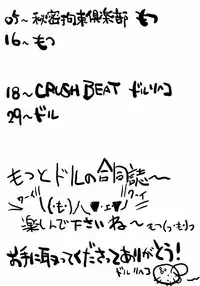 05～秘密拘束倶楽部 もつ
16～もつ
18～CRUSH BEAT ドルリヘコ
29～ドル
もつとドルの合同誌～
ワーイ ワーイ
\(・ω・)八(▼・ェ・▼)/
楽しんで下さいね～もつ(っ・ω・つ)
お手に取ってくださってありがとう!
ドルリヘコ